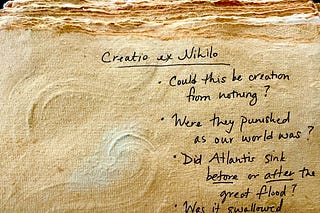 Creatio ex Nihilo
• Could this be creation
from nothing?
• Were they punished
as our world was?
• Did Atlantis sink
before or after the
great flood?
• Was it swallowed